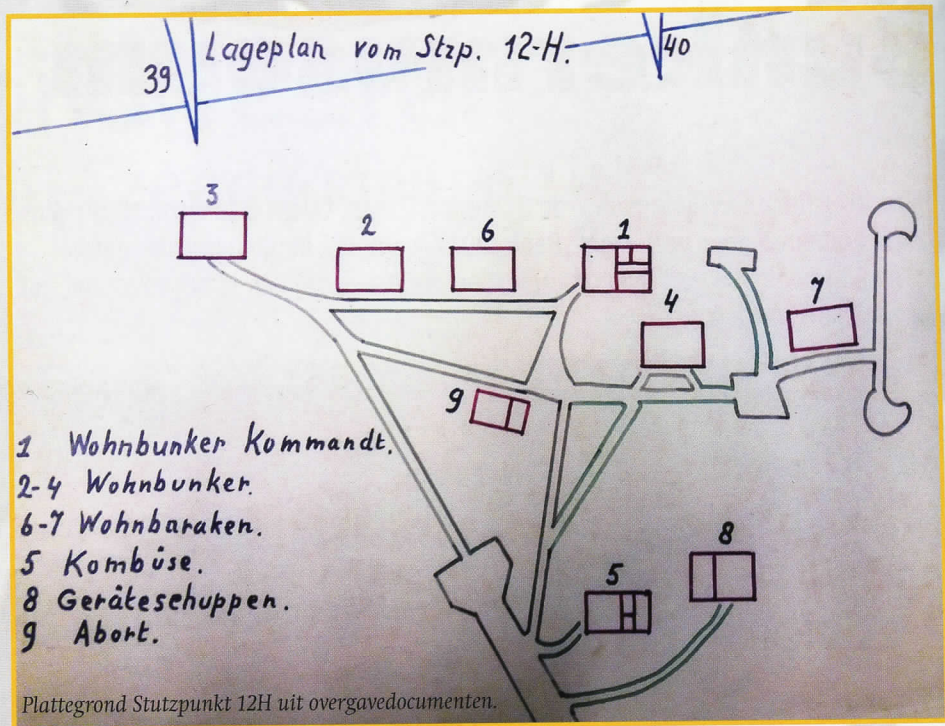 Lageplan vom Stzp. 12-H.
39
40
3
2
6
1
4
7
9
1 Wohnbunker Kommandt.
2-4 Wohnbunker.
6-7 Wohnbaraken.
5 Kombüse.
8 Geräteschuppen.
9 Abort.
8
5
Plattegrond Stutzpunkt 12H uit overgavedocumenten.